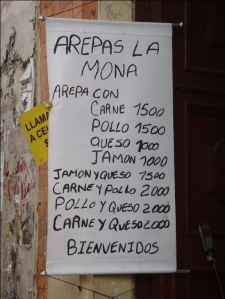 AREPAS LA
MONA
AREPA CON
CARNE 1500
POLLO 1500
QUESO 1000
JAMON 1000
JAMON Y QUESO 1500
CARNE Y POLLO 2000
POLLO Y QUESO 2000
CARNE Y QUESO 2000
BIENVENIDOS
LLAMA
A CE